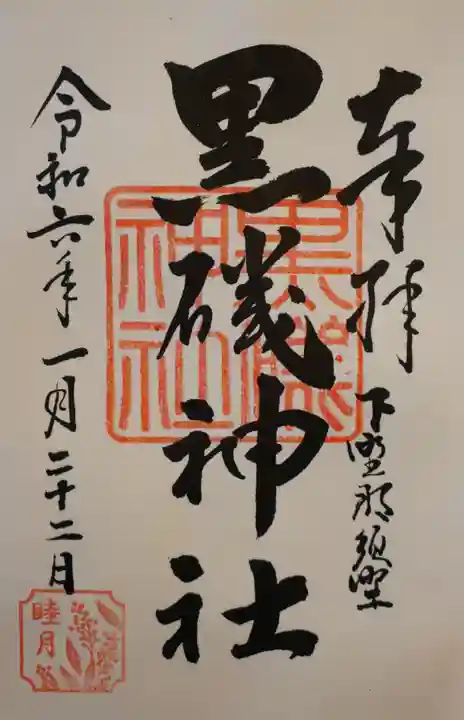 奉拝
下野那須野
黒磯神社
黒磯神社
令和六年一月二十二日
睦月